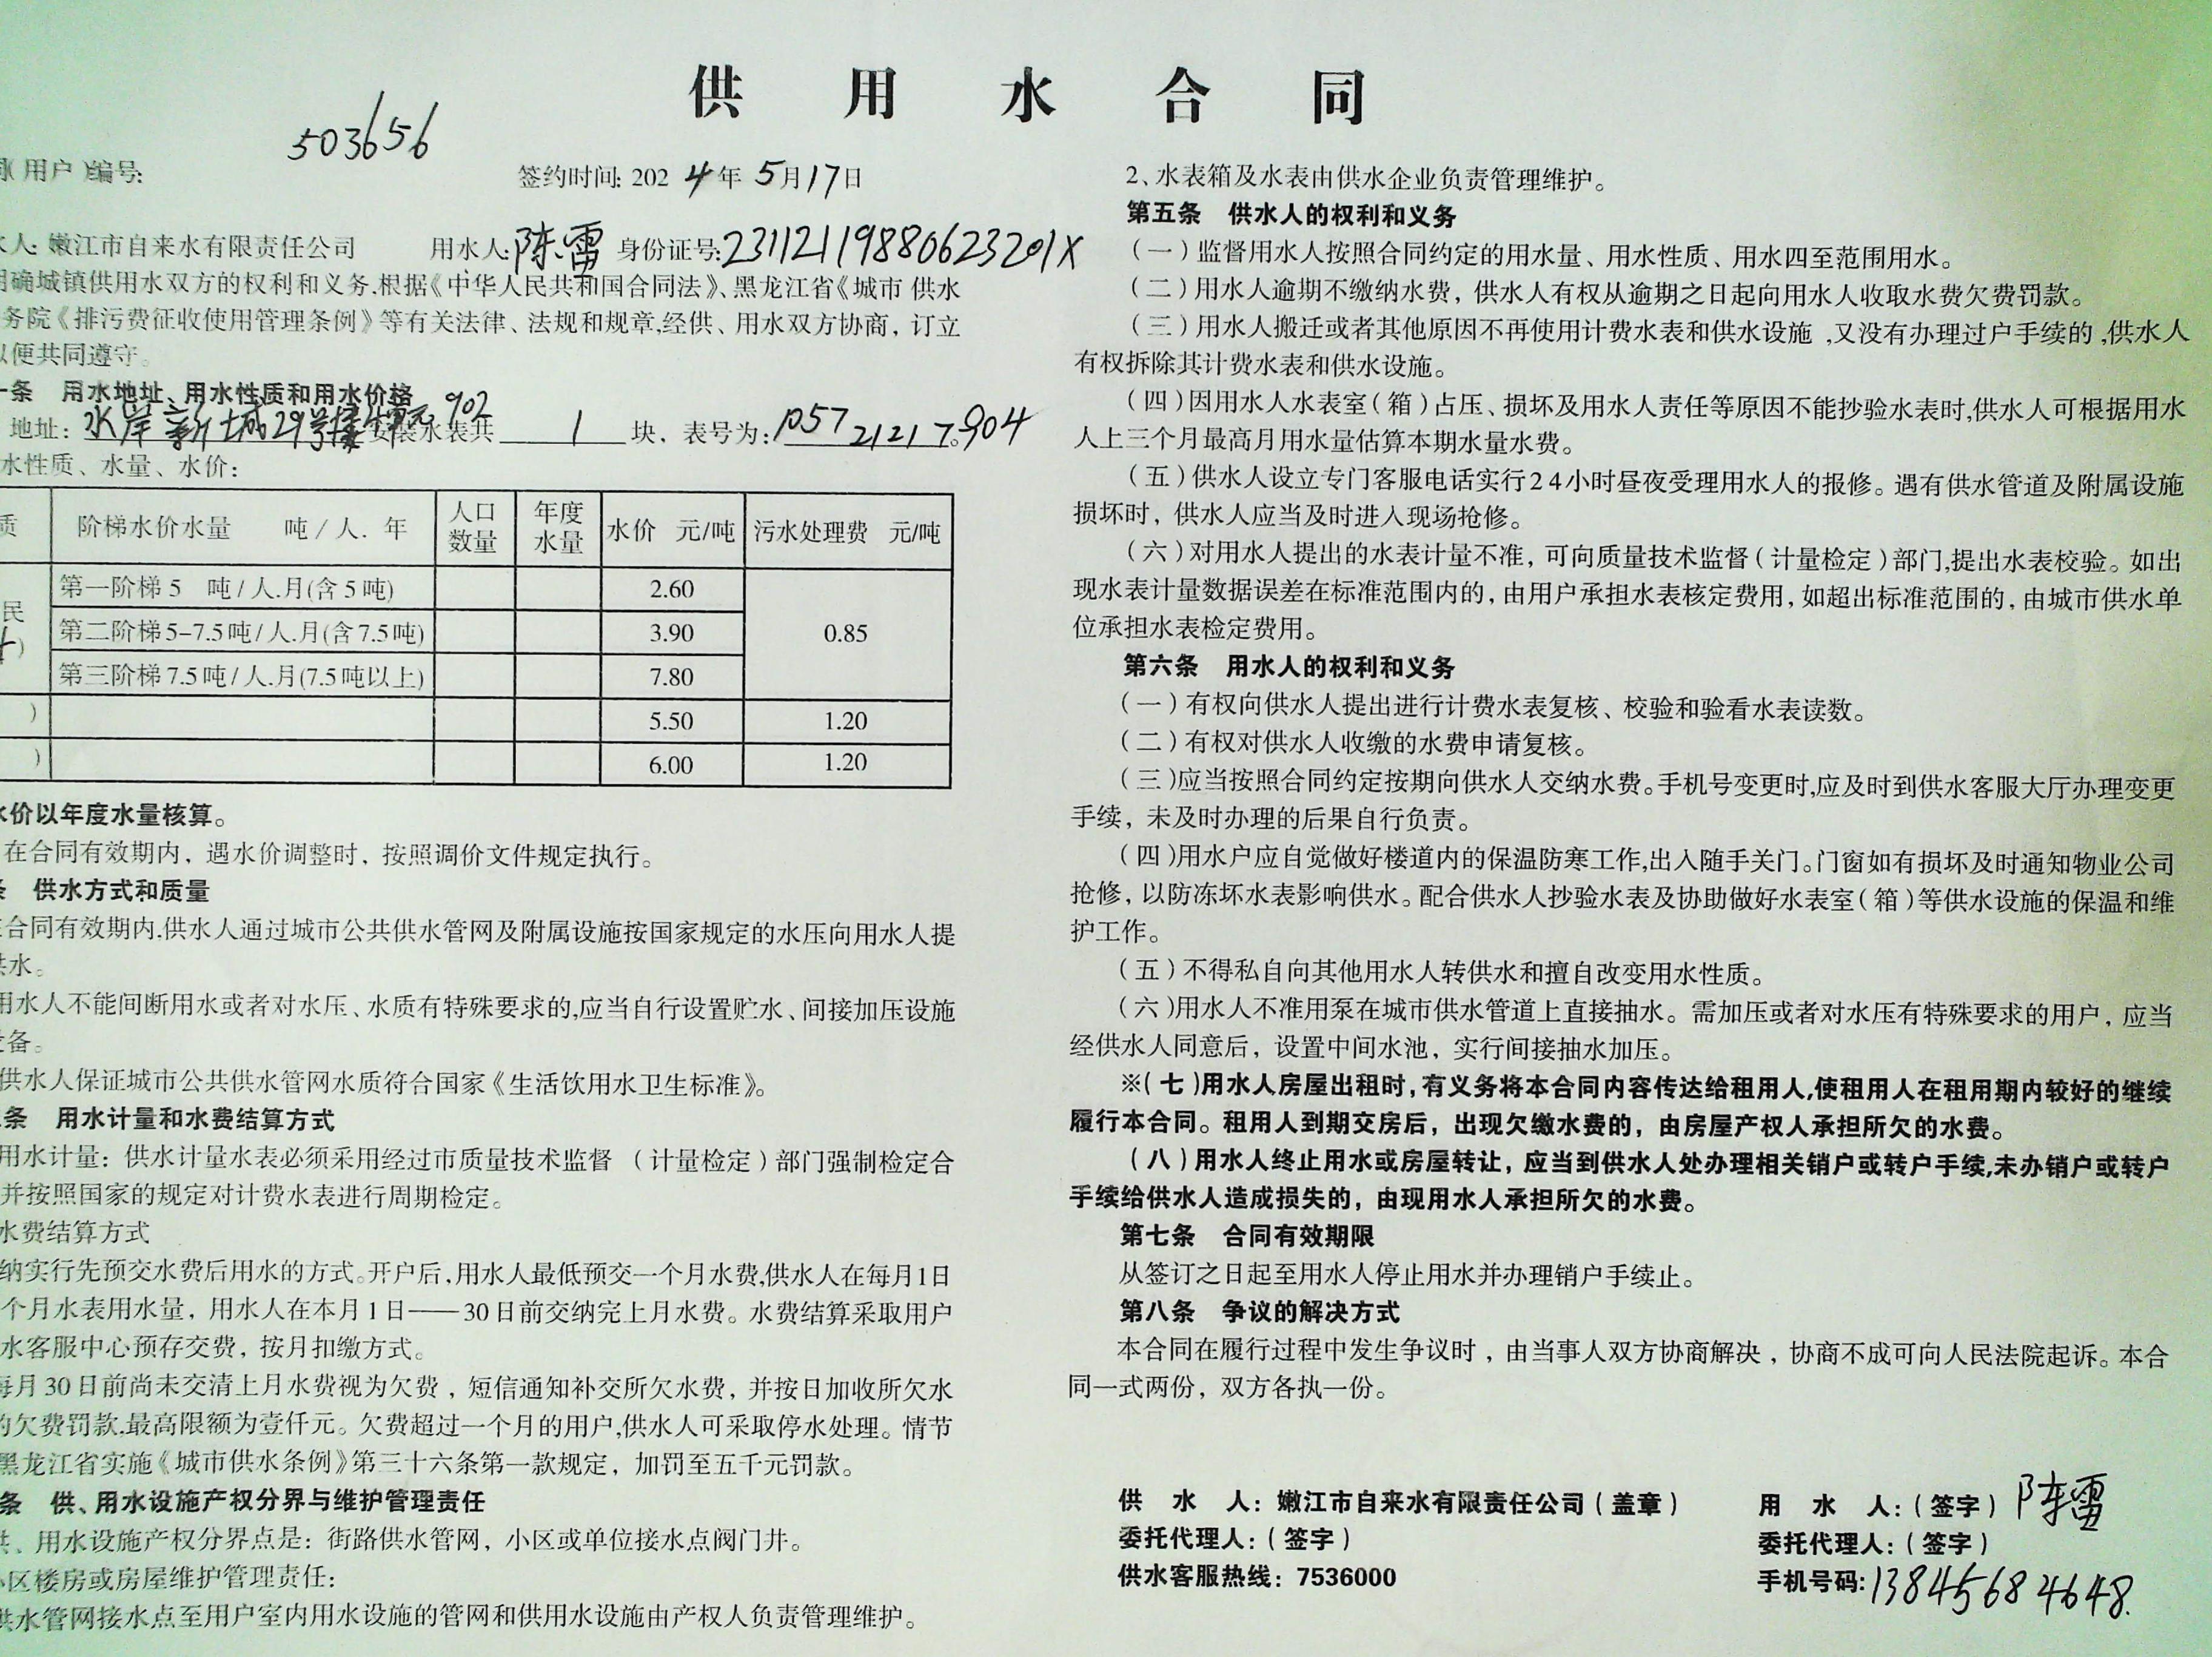 供 用 水 合 同
503656
(用户)编号:
签约时间: 2024年5月17日
水人: 嫩江市自来水有限责任公司 用水人: 陈雷 身份证号:
明确城镇供用水双方的权利和义务,根据《中华人民共和国合同法》、黑龙江省《城市 供水
务院《排污费征收使用管理条例》等有关法律、法规和规章,经供、用水双方协商，订立
以便共同遵守。
一条 用水地址、用水性质和用水价格
地址: 水岸新城29号楼 902 安装水表共 1 块，表号为:
水性质、水量、水价:
质 阶梯水价水量 吨/人.年 人口数量 年度水量 水价 元/吨 污水处理费 元/吨
民 第一阶梯5 吨/人.月(含5吨) 2.60 0.85
第二阶梯5-7.5吨/人.月(含7.5吨) 3.90
第三阶梯7.5吨/人.月(7.5吨以上) 7.80
) 5.50 1.20
) 6.00 1.20
水价以年度水量核算。
在合同有效期内，遇水价调整时，按照调价文件规定执行。
条 供水方式和质量
合同有效期内,供水人通过城市公共供水管网及附属设施按国家规定的水压向用水人提
供水。
用水人不能间断用水或者对水压、水质有特殊要求的,应当自行设置贮水、间接加压设施
备。
供水人保证城市公共供水管网水质符合国家《生活饮用水卫生标准》。
条 用水计量和水费结算方式
用水计量：供水计量水表必须采用经过市质量技术监督 （计量检定）部门强制检定合
并按照国家的规定对计费水表进行周期检定。
水费结算方式
纳实行先预交水费后用水的方式。开户后,用水人最低预交一个月水费,供水人在每月1日
个月水表用水量，用水人在本月1日——30日前交纳完上月水费。水费结算采取用户
水客服中心预存交费，按月扣缴方式。
每月30日前尚未交清上月水费视为欠费，短信通知补交所欠水费，并按日加收所欠水
的欠费罚款,最高限额为壹仟元。欠费超过一个月的用户,供水人可采取停水处理。情节
黑龙江省实施《城市供水条例》第三十六条第一款规定，加罚至五千元罚款。
条 供、用水设施产权分界与维护管理责任
供、用水设施产权分界点是：街路供水管网，小区或单位接水点阀门井。
小区楼房或房屋维护管理责任：
供水管网接水点至用户室内用水设施的管网和供用水设施由产权人负责管理维护。
2、水表箱及水表由供水企业负责管理维护。
第五条 供水人的权利和义务
（一）监督用水人按照合同约定的用水量、用水性质、用水四至范围用水。
（二）用水人逾期不缴纳水费，供水人有权从逾期之日起向用水人收取水费欠费罚款。
（三）用水人搬迁或者其他原因不再使用计费水表和供水设施 ,又没有办理过户手续的 ,供水人
有权拆除其计费水表和供水设施。
（四）因用水人水表室（箱）占压、损坏及用水人责任等原因不能抄验水表时,供水人可根据用水
人上三个月最高月用水量估算本期水量水费。
（五）供水人设立专门客服电话实行24小时昼夜受理用水人的报修。遇有供水管道及附属设施
损坏时，供水人应当及时进入现场抢修。
（六）对用水人提出的水表计量不准，可向质量技术监督（计量检定）部门,提出水表校验。如出
现水表计量数据误差在标准范围内的，由用户承担水表核定费用，如超出标准范围的，由城市供水单
位承担水表检定费用。
第六条 用水人的权利和义务
（一）有权向供水人提出进行计费水表复核、校验和验看水表读数。
（二）有权对供水人收缴的水费申请复核。
（三）应当按照合同约定按期向供水人交纳水费。手机号变更时,应及时到供水客服大厅办理变更
手续，未及时办理的后果自行负责。
（四）用水户应自觉做好楼道内的保温防寒工作,出入随手关门。门窗如有损坏及时通知物业公司
抢修，以防冻坏水表影响供水。配合供水人抄验水表及协助做好水表室（箱）等供水设施的保温和维
护工作。
（五）不得私自向其他用水人转供水和擅自改变用水性质。
（六）用水人不准用泵在城市供水管道上直接抽水。需加压或者对水压有特殊要求的用户，应当
经供水人同意后，设置中间水池，实行间接抽水加压。
※（七）用水人房屋出租时，有义务将本合同内容传达给租用人,使租用人在租用期内较好的继续
履行本合同。租用人到期交房后，出现欠缴水费的，由房屋产权人承担所欠的水费。
（八）用水人终止用水或房屋转让，应当到供水人处办理相关销户或转户手续,未办销户或转户
手续给供水人造成损失的，由现用水人承担所欠的水费。
第七条 合同有效期限
从签订之日起至用水人停止用水并办理销户手续止。
第八条 争议的解决方式
本合同在履行过程中发生争议时，由当事人双方协商解决，协商不成可向人民法院起诉。本合
同一式两份，双方各执一份。
供 水 人：嫩江市自来水有限责任公司（盖章） 用 水 人：（签字）陈雷
委托代理人：（签字） 委托代理人：（签字）
供水客服热线：7536000 手机号码: 13845684648.